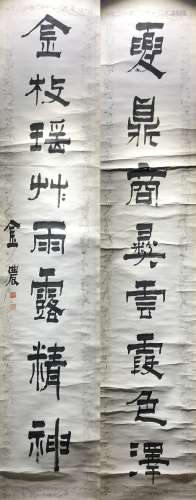 夏鼎商彝雲霞色澤
金枝瑶艸雨露精神
金農